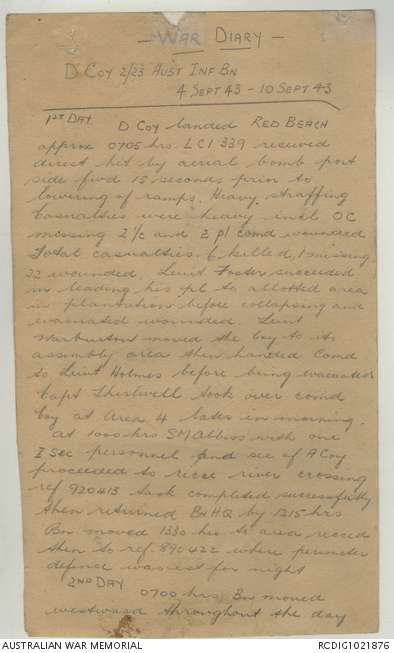 — WAR DIARY —
D COY 2/23 AUST INF BN
4 SEPT 43 – 10 SEPT 43
1ST DAY D Coy landed RED BEACH
approx 0705 hrs. LCI 339 received
direct hit by aerial bomb port
side fwd 15 seconds prior to
lowering of ramps. Heavy straffing
Casualties were heavy incl OC
missing 2 i/c and 2 pl comd wounded
Total casualties. 6 killed, 1 missing
22 wounded. Lieut Foster succeeded
in leading his pl to allotted area
in plantation before collapsing and
evacuated wounded. Lieut
Warburton moved the Coy to its
assembly area then handed Comd
to Lieut Holmes before being evacuated
Capt Thirlwell took over comd
Coy at Area 4 later in morning.
At 1000 hrs SM with one
I Sec personnel and sec of A Coy
proceeded to recce river crossing
ref 920413 task completed successfully
then returned BnHQ by 1215 hrs
Bn moved 1330 hrs to area recced
then to ref 890422 where perimeter
defence was est for night
2ND DAY
0700 hrs Bn moved
westward throughout the day
AUSTRALIAN WAR MEMORIAL
RCDIG1021876